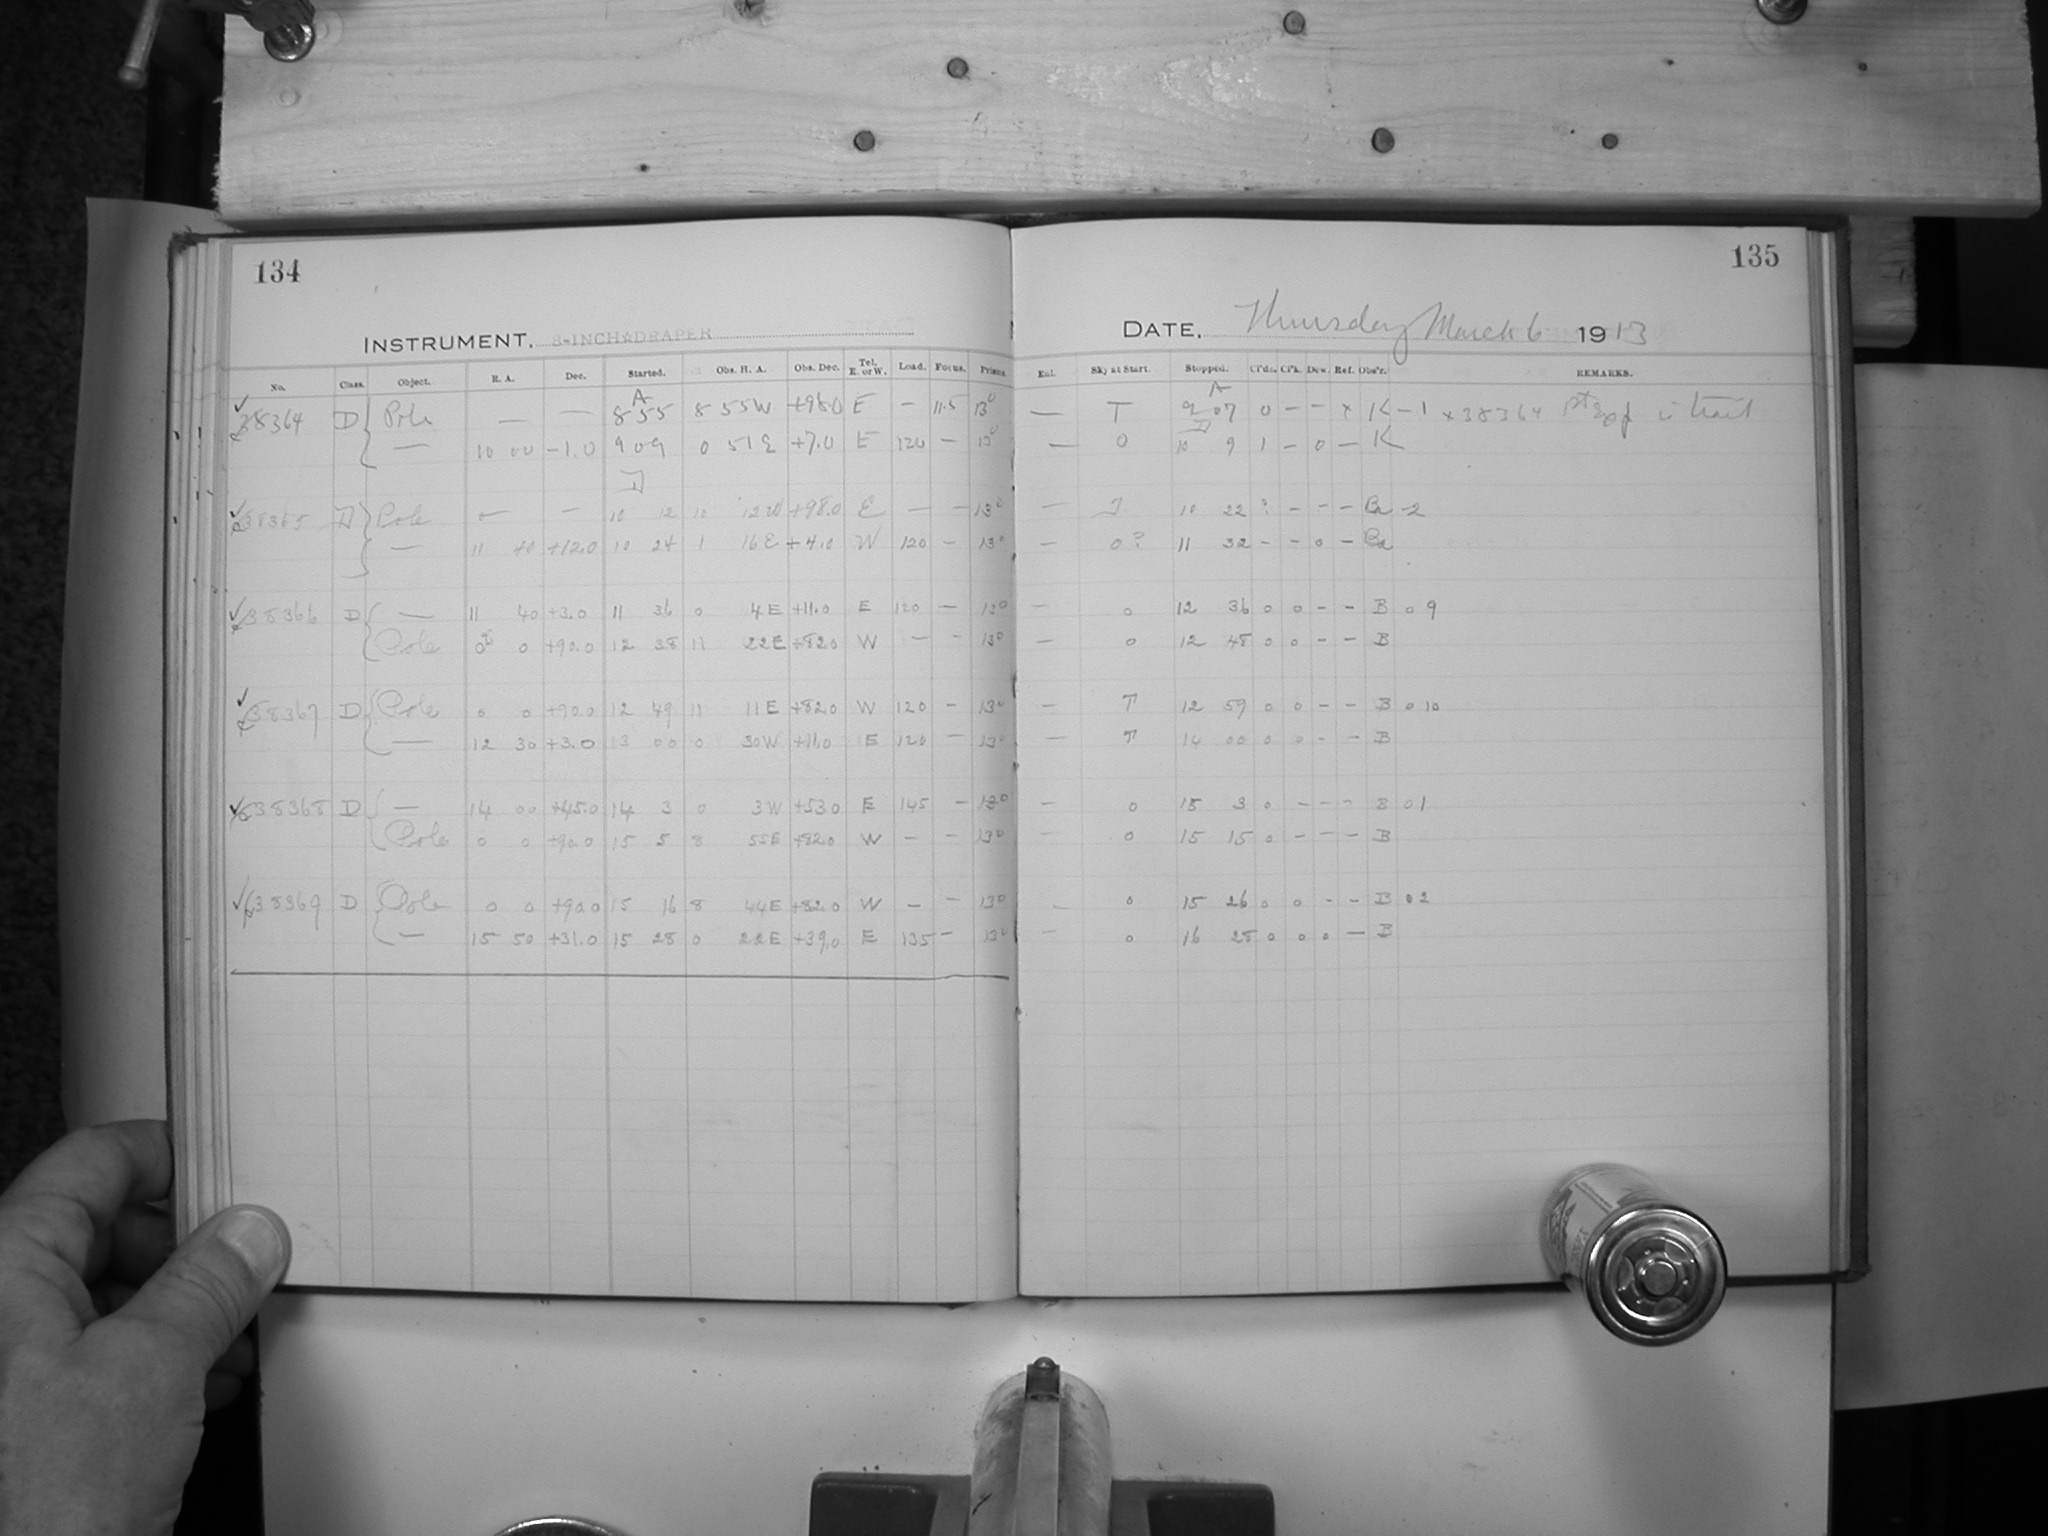 134
INSTRUMENT. 8-INCH DRAPER
No. Class. Object. R. A. Dec. Started. Obs. H. A. Obs. Dec. Tel. E. or W. Load. Focus. Prisms.
A
38364 D Pole — — 8 55 8 55 W +98.0 E — 11.5 13°
— 10 00 -1.0 9 09 0 51 E +7.0 E 120 — 13°
38365 D Pole — — 10 12 10 12 W +98.0 E — — 13°
— 11 40 +12.0 10 24 1 16 E +4.0 W 120 — 13°
38366 D — 11 40 +3.0 11 36 0 4 E +11.0 E 120 — 13°
Pole 0 +90.0 12 38 11 22 E +82.0 W — — 13°
38367 D Pole 0 0 +90.0 12 49 11 11 E +82.0 W 120 — 13°
— 12 30 +3.0 13 00 0 30 W +11.0 E 120 — 13°
38368 D — 14 00 +45.0 14 3 0 3 W +53.0 E 145 — 13°
Pole 0 0 +90.0 15 5 8 55 E +82.0 W — — 13°
38369 D Pole 0 0 +90.0 15 16 8 44 E +82.0 W — — 13°
— 15 50 +31.0 15 28 0 22 E +39.0 E 135 — 13°
135
DATE. Thursday March 6 1913
Enl. Sky at Start. Stopped. Cl'ds. Cl'k. Dew. Ref. Obs'r. REMARKS.
A
— T 9 07 0 — — x K — 1 x 38364 1st is trail
— 0 10 9 1 — 0 — K
— 10 22 ? — — — Ba -2
— 0? 11 32 — — 0 — Ba
— 0 12 36 0 0 — — B 0 9
— 0 12 48 0 0 — — B
— T 12 59 0 0 — — B 0 10
— T 14 00 0 0 — — B
— 0 15 3 0 — — — B 0 1
— 0 15 15 0 — — — B
— 0 15 26 0 0 — — B 0 2
— 0 16 28 0 0 0 — B